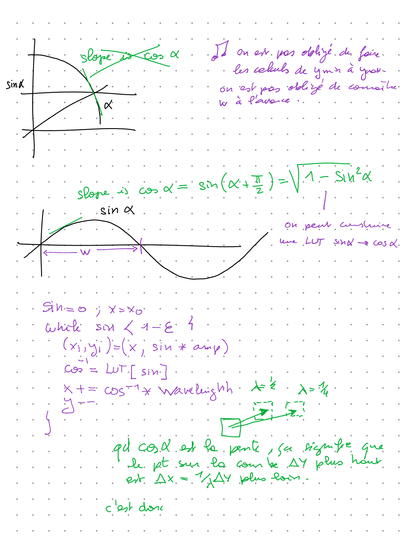 slope is cos α
sin α
α
on est pas obligé de faire
les calculs de ymin à ymax
on est pas obligé de connaître
w à l'avance.
slope is cos α = sin(α + π/2) = √1 - sin²α
sin α
w
on peut construire
une LUT sin α → cos α
sin = 0 ; x = x₀
while sin < 1-ε {
(xᵢ, yᵢ) = (x, sin * amp)
cos⁻¹ = LUT[sin]
x += cos⁻¹ * wavelength
y --
}
λ = 1/2 λ = 1/4
qd cos α est la pente, ça signifie que
le pt sur la courbe ΔY plus haut
est ΔX = 1/λ ΔY plus loin.
c'est donc